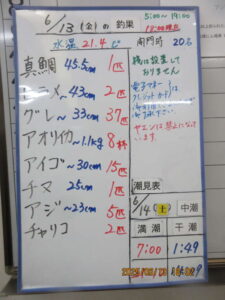 6/13(金)の釣果
5:00～19:00
水温21.4ど
南門可
真鯛 45.5cm 1匹
ヒラメ ~43cm 2匹
グレ ~38cm 37匹
アオリイカ ~1.1kg 8杯
アイゴ ~30cm 15匹
チヌ 25cm 1匹
アジ ~23cm 5匹
チャリコ 2匹
銭は設置して
おりません
電子マネー
クレジットカード
ヤエンは禁止になって
います。
潮見表
6/14(土) 中潮
満潮 干潮
7:00 1:49